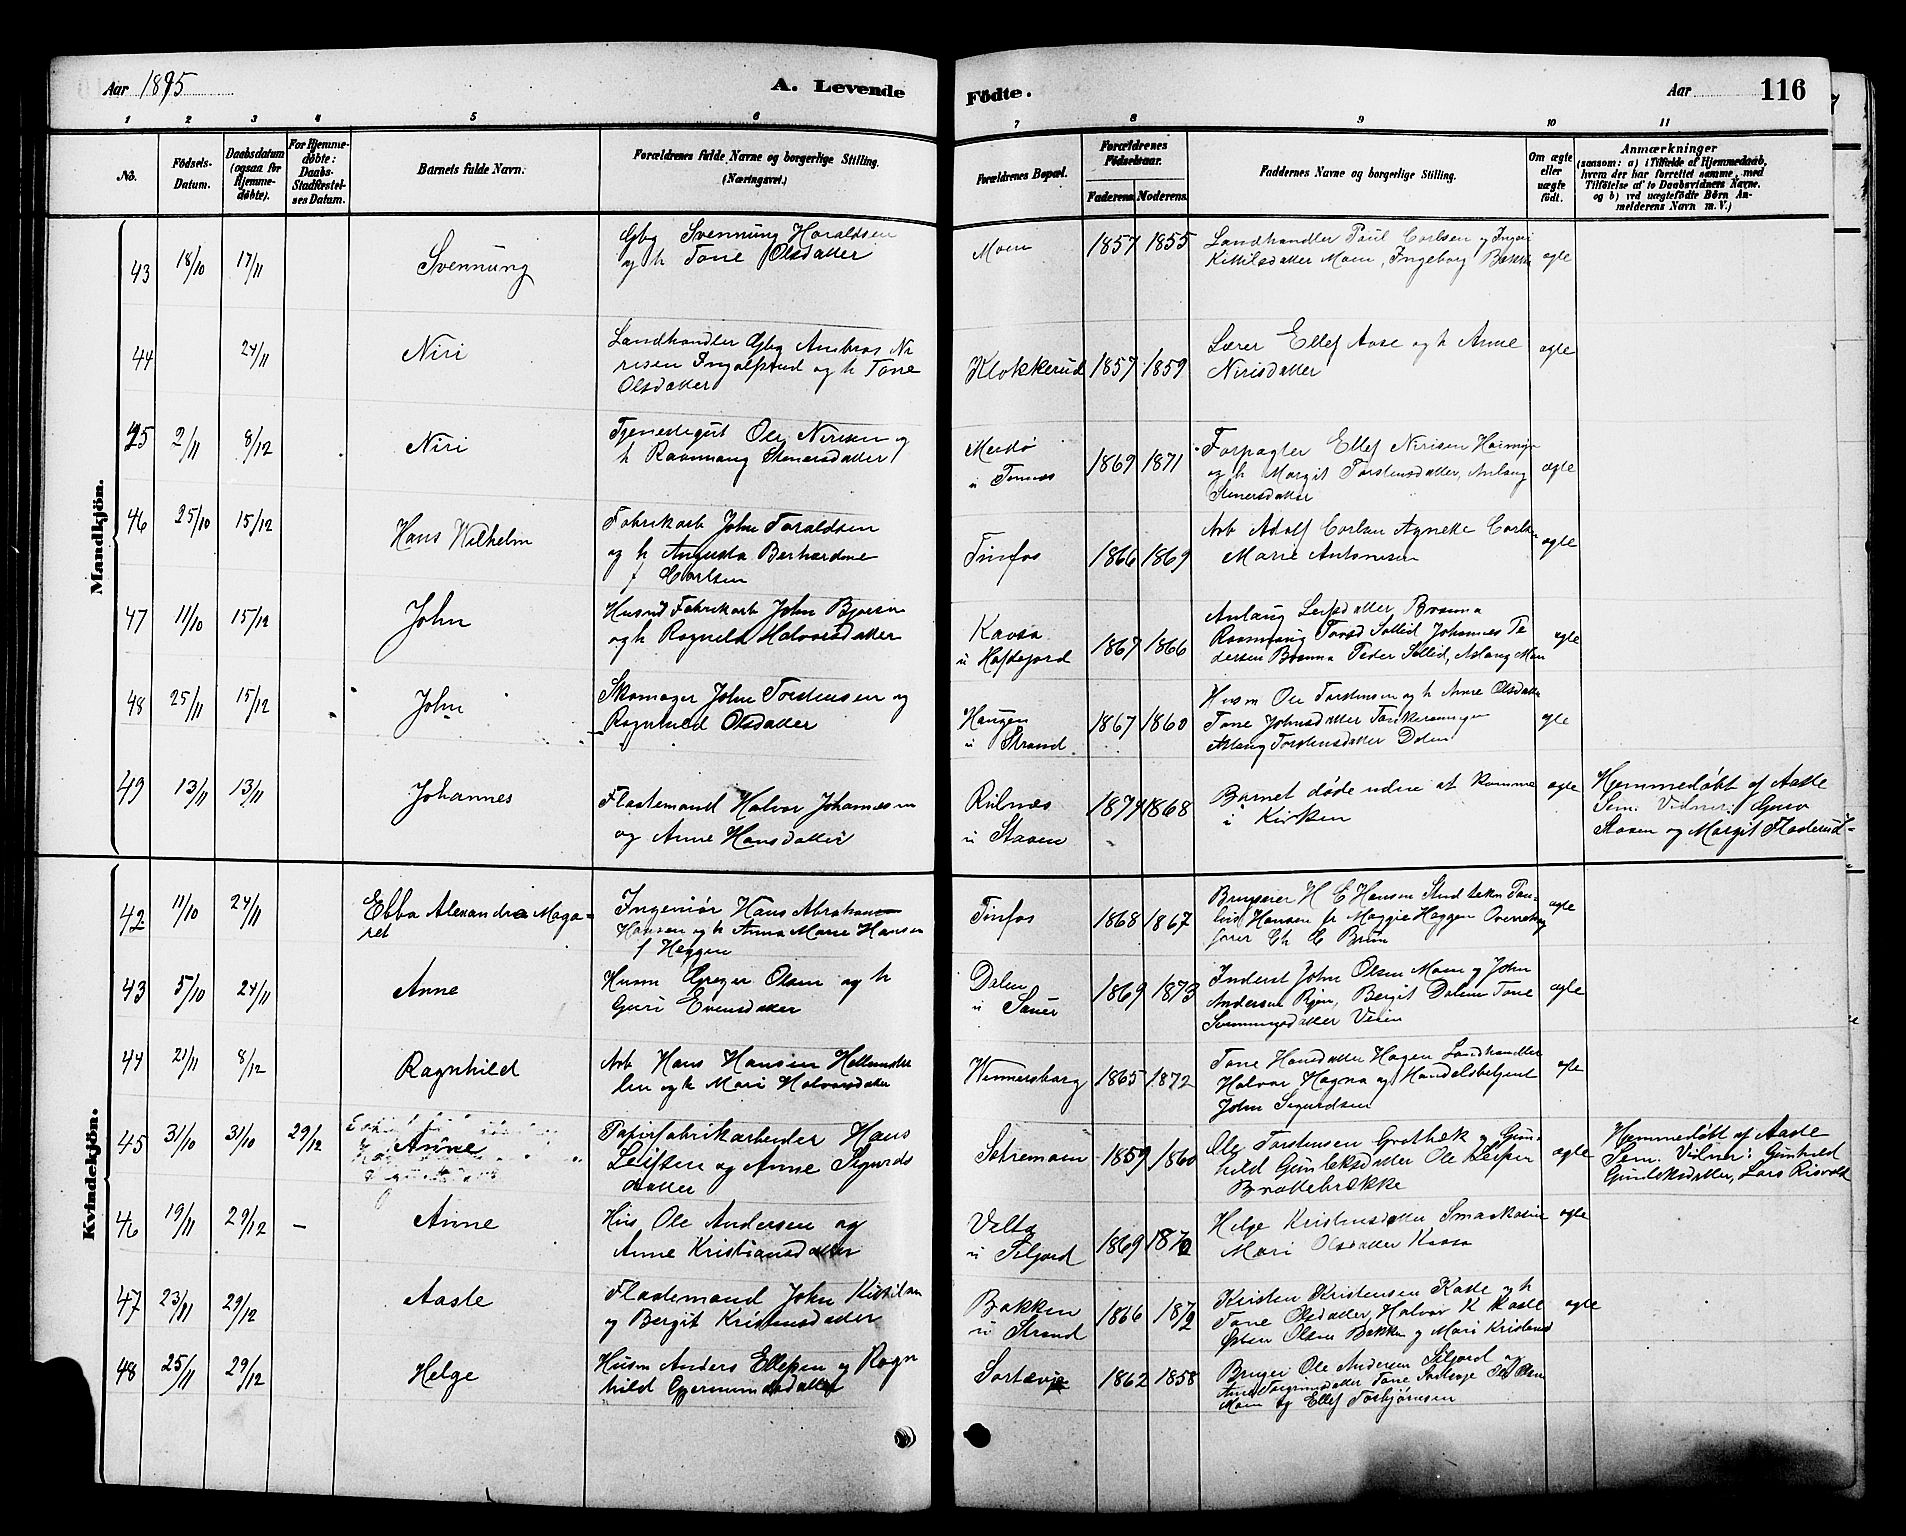 Aar 1895
A. Levende
Födte.
Aar
116
1 2 3 4 5 6 7 8 9 10 11
No.
Födsels-
Datum.
Daabsdatum
(ogsaa for
Hjemme-
döbte).
For Hjemme-
döbte:
Daabs-
Stadfæstel-
ses Datum.
Barnets fulde Navn.
Forældrenes fulde Navne og borgerlige Stilling.
(Næringsvei.)
Forældrenes Bopæl.
Forældrenes
Födselsaar.
Faderens. Moderens.
Faddernes Navne og borgerlige Stilling.
Om ægte
eller
uægte
födt.
Anmærkninger
(saasom: a) i Tilfælde af Hjemmedaab,
hvem der har forrettet samme, med
Tilföielse af to Daabsvidners Navne.
og b) ved uægtefödte Börn An-
melderens Navn m. V.)
Mandkjön.
43 18/10 17/11 Svennung
Gbg Svennung Haraldsen
og h Tone Olsdatter
Moen 1857 1855
Landhandler Paul Carlsen og Ingeri
Kittilsdatter Moen, Ingeborg
ægte
44 24/11 Niri
Landhandler Gbg Andreas Ni
risen Ingolfsland og h Tone
Olsdatter
Klokkerud 1857 1859
Lærer Ellef Aase og h Anne
Nirisdatter
ægte
45 2/11 8/12 Niri
Tjenestegut Ole Nirisen og
h Raamang Stenersdatter
1869 1871
Forpagter Ellef Nirisen
og h Margit Torstensdatter, Aslaug
Stenersdatter
ægte
46 25/10 15/12 Hans Wilhelm
Fabrikarb John Taraldsen
og h Augusta Berhardine
f Carlsen
Tinfos 1866 1869
Arb Adolf Carlsen Agnethe Carlsen
Marie Antonesen
ægte
47 11/10 15/12 John
Husmd Fabrikarb John Bjørsen
og h Ragnild Halvorsdatter
Kaasa
u Hafdegjord
1867 1866
Aslaug Leifsdatter
Raamaug Johannes Pe
dersen Peder Sollid, Aslaug Moen
ægte
48 25/11 15/12 John
Skomager John Torstensen og
Ragnhild Olsdatter
Haugen
u Strand
1867 1860
Husm Ole Torstensen og h Anne Olsdatter
Tone Johnsdatter
Aslaug Torstensdatter Dalen
ægte
49 13/11 13/11 Johannes
Flaatemand Halvor Johannesen
og Anne Hansdatter
u Staaen
1874 1868
Barnet døde uden at komme
i Kirken
ægte
Hjemmedøbt af Aaste
Sem. Vidner: Guro
Staaen og Margit Flaterud
Kvindekjön.
42 11/10 24/11 Ebba Alexandra Maga-
ret
Ingeniør Hans Abraham
Hansen og h Anna Marie Hansen
f Heggen
Tinfos 1868 1867
Brugseier H C Hansen Stud tekn
Hansen fr Maggie Heggen
Ch C Bruun
ægte
43 5/10 24/11 Anne
Husm Greger Olsen og h
Guri Evensdatter
Dalen
u Sauer
1869 1873
Inderst John Olsen Moen og John
Andersen Bergit Dalen Tone
Svennungsdatter Veien
ægte
44 21/11 8/12 Ragnhild
Arb Hans Hansen
og h Mari Halvorsdatter
Wennersborg 1865 1872
Tone Hansdatter Hagen Landhandler
Halvor Hagna og Handelsbetjent
John Sigurdsen
ægte
45 31/10 31/10 29/12 Anne
Papirfabrikarbeider Hans
Leifsen og Anne Sigurds
datter
Sætremoen 1859 1860
Ole Torstensen Grotbæk og Gun-
hild Gunleksdatter Ole Leifsen
Brattebrække
ægte
Hjemmedøbt af Aaste
Sem. Vidner: Gunhild
Gunleksdatter, Lars Risvold
46 19/11 29/12 – Anne
Hus Ole Andersen og
Anne Kristiansdatter
u Siljord
1869 1870
Helge Kristensdatter
Mari Olsdatter Kaasa
ægte
47 23/11 29/12 Aaste
Flaatemand John Kittilsen
og Bergit Kristensdatter
Bakken
u Strand
1866 1872
Kristen Kristensen Kaste og h
Tone Olsdatter, Halvor K Kaste
Østen Olsen Bakken og Mari Kristensd
ægte
48 25/11 29/12 Helge
Husm Anders Ellefsen og Ragn
hild Gjermundsdatter
1862 1858
Bruger Ole Andersen Siljord og
Tone
Moen og Ellef Torbjørnsen